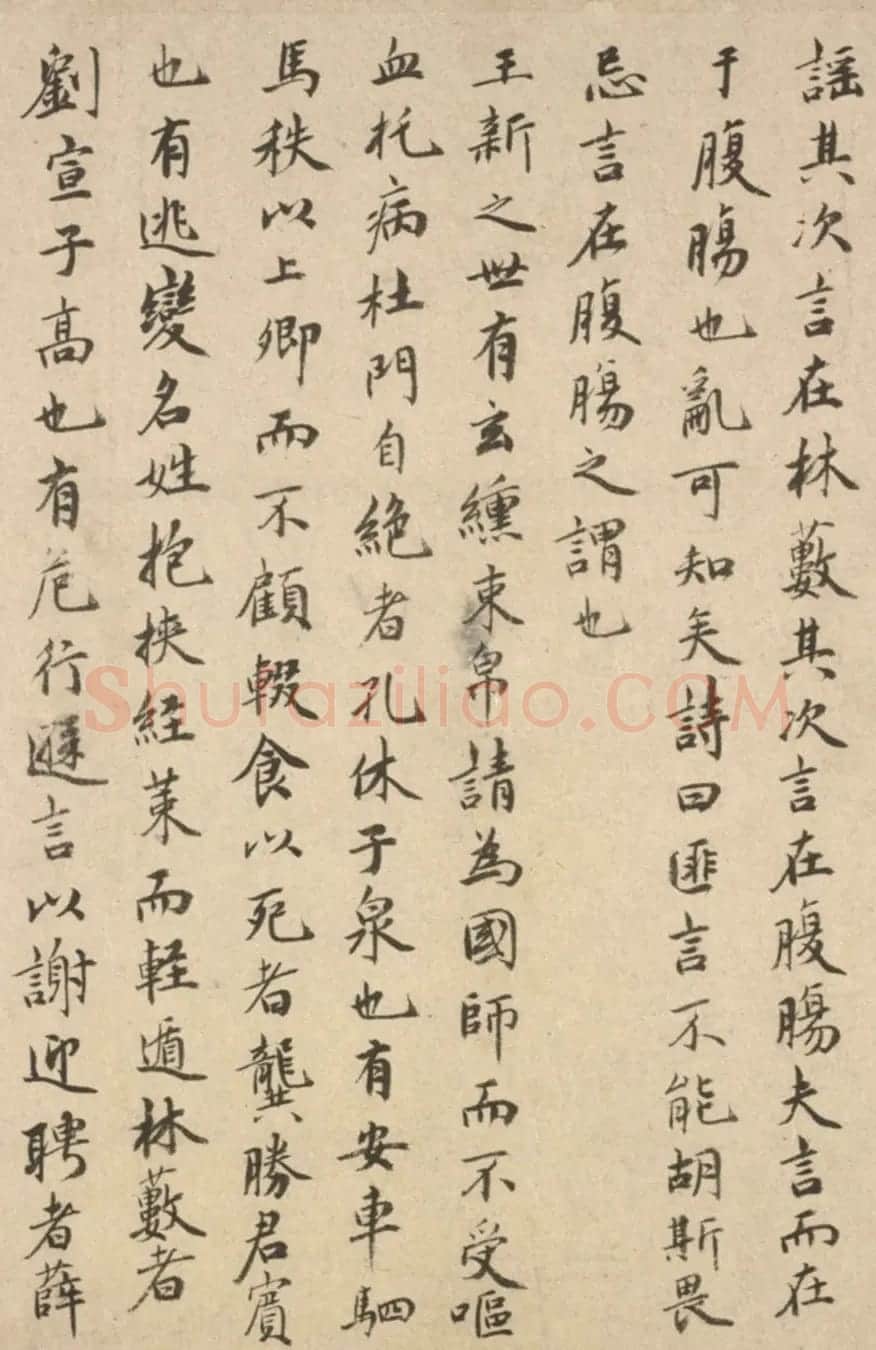 謡其次言在林藪其次言在腹腸夫言而在
于腹腸也亂可知矣詩曰匪言不能胡斯畏
忌言在腹腸之謂也
王新之世有玄纁束帛請為國師而不受嘔
血托病杜門自絶者孔休子泉也有安車駟
馬秩以上卿而不顧輟食以死者龔勝君賓
也有逃變名姓抱挾経䇿而軽遁林藪者
劉宣子高也有危行遜言以謝迎聘者薛
Shufaziliao.COM